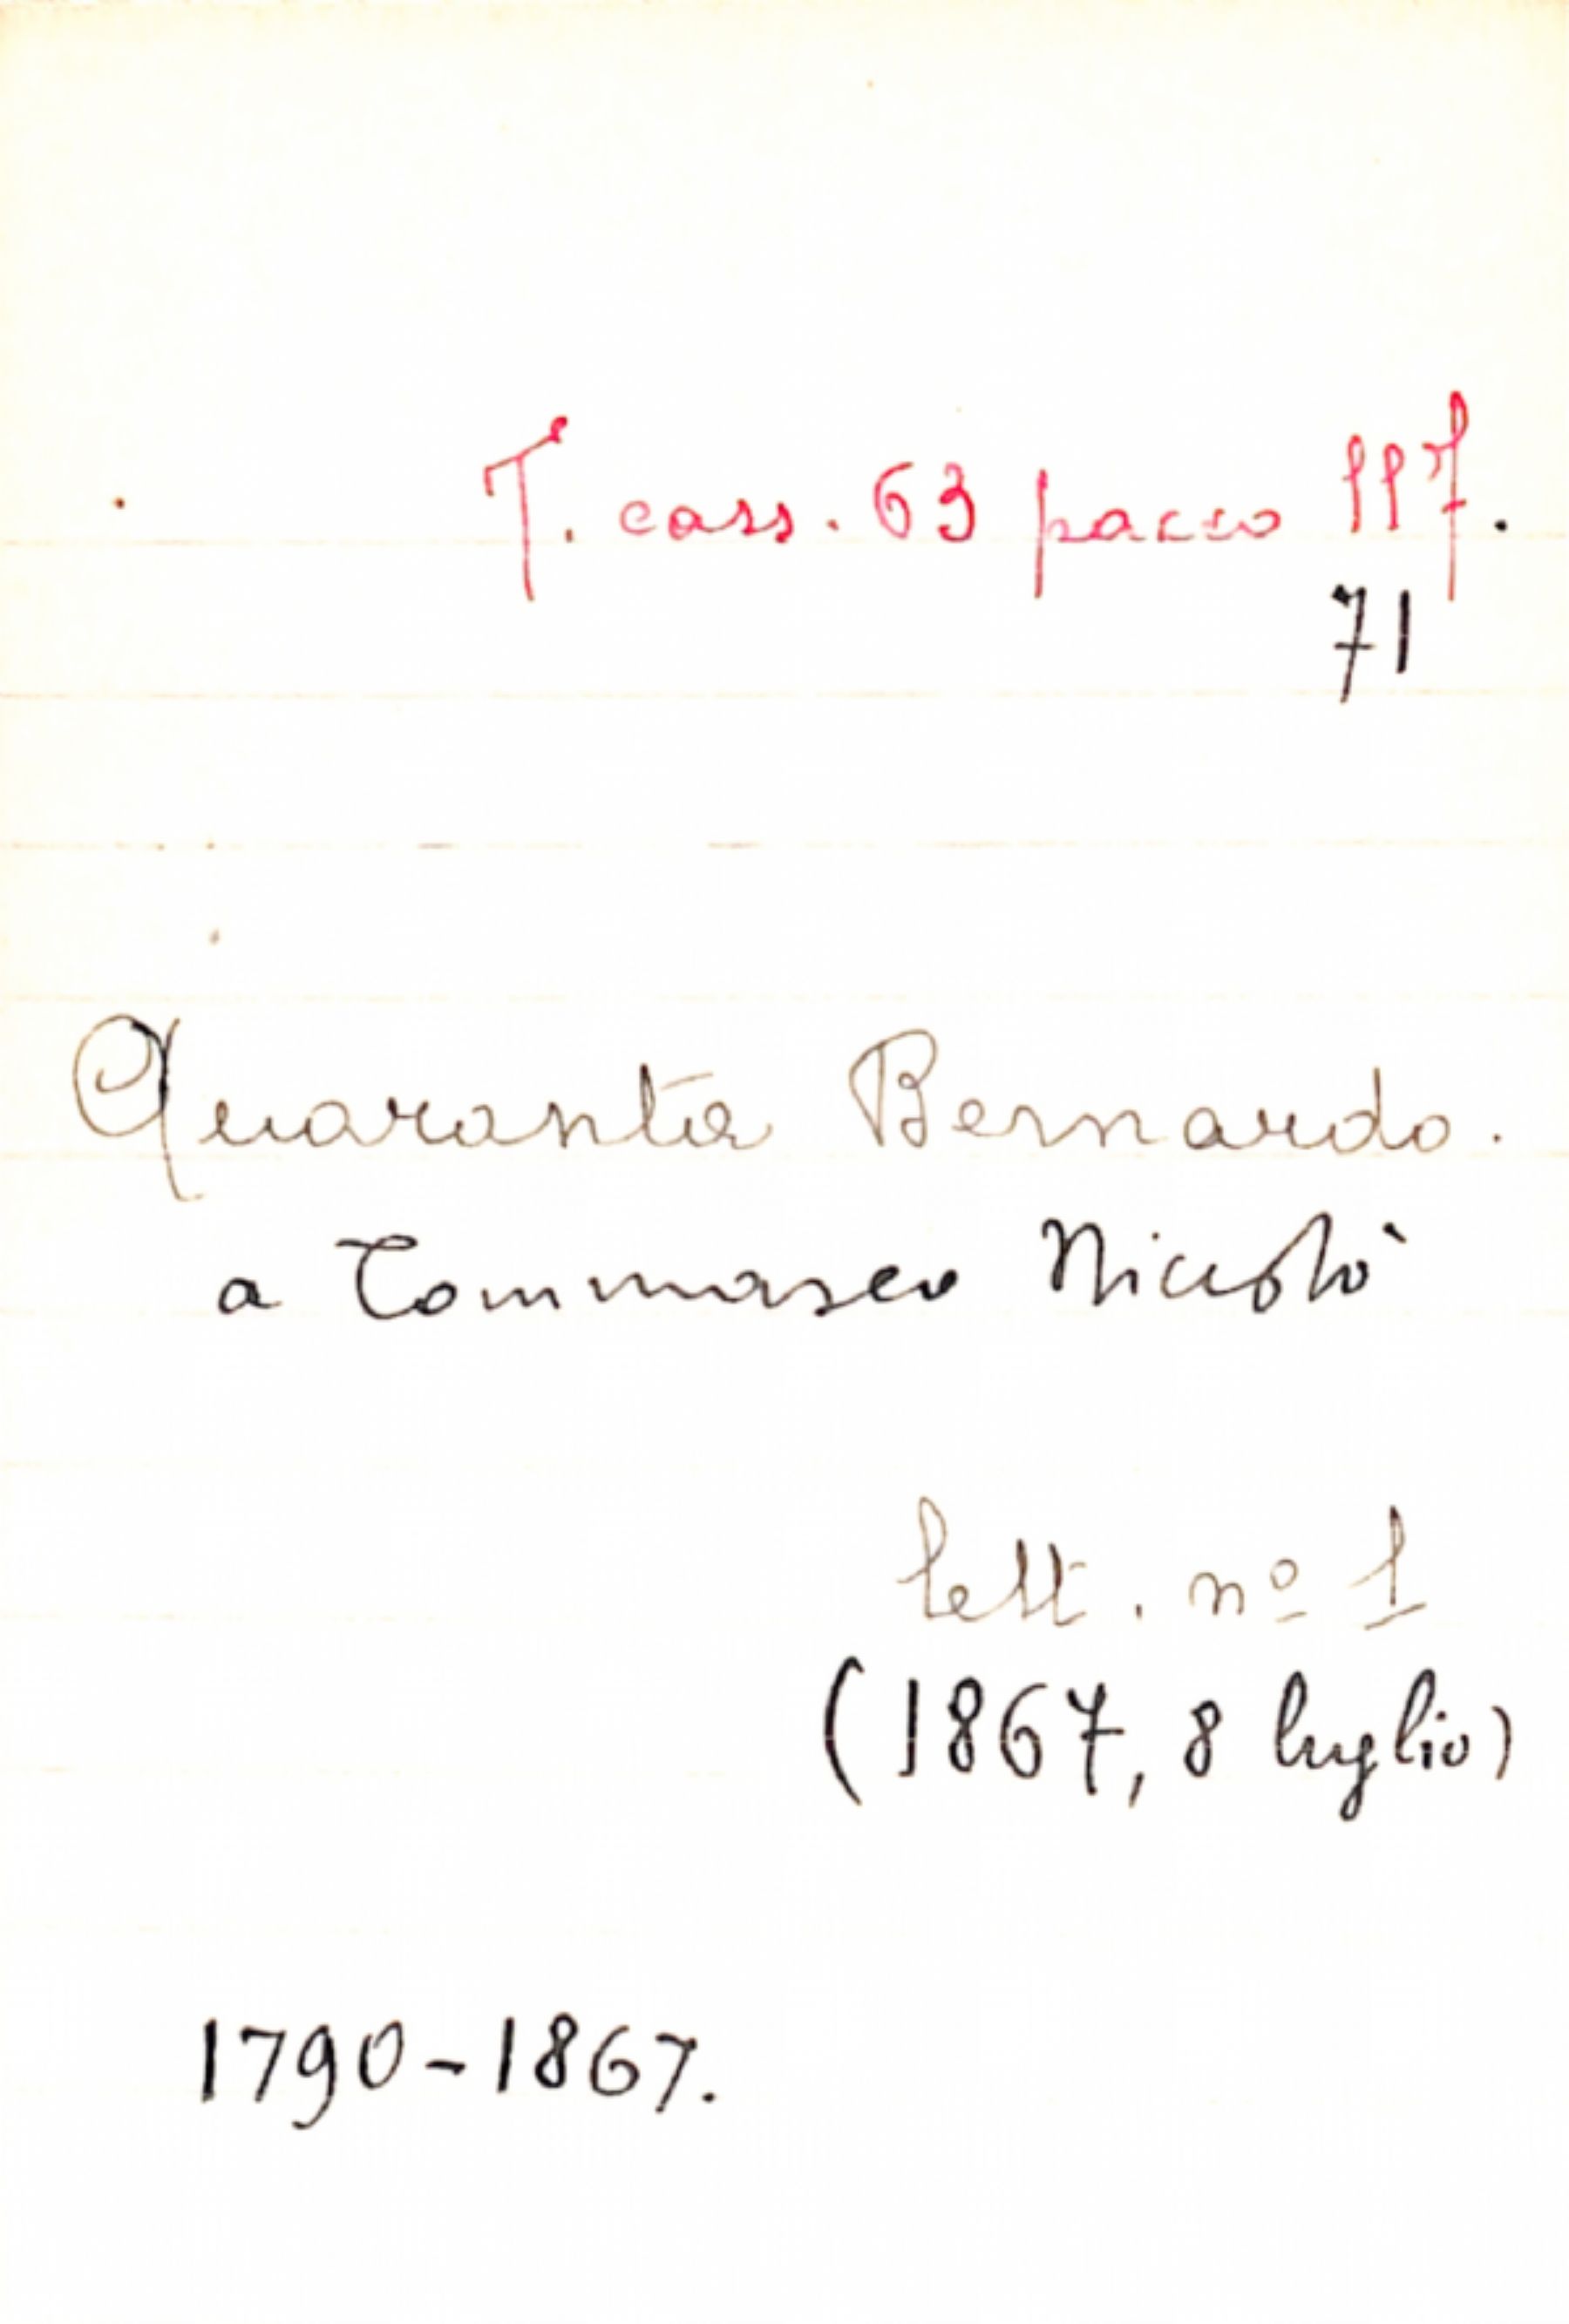 T. cass. 63 pacco 117.
71
Quaranta Bernardo.
a Tommaseo Niccolò
lett. nº 1
(1867, 8 luglio)
1790-1867.